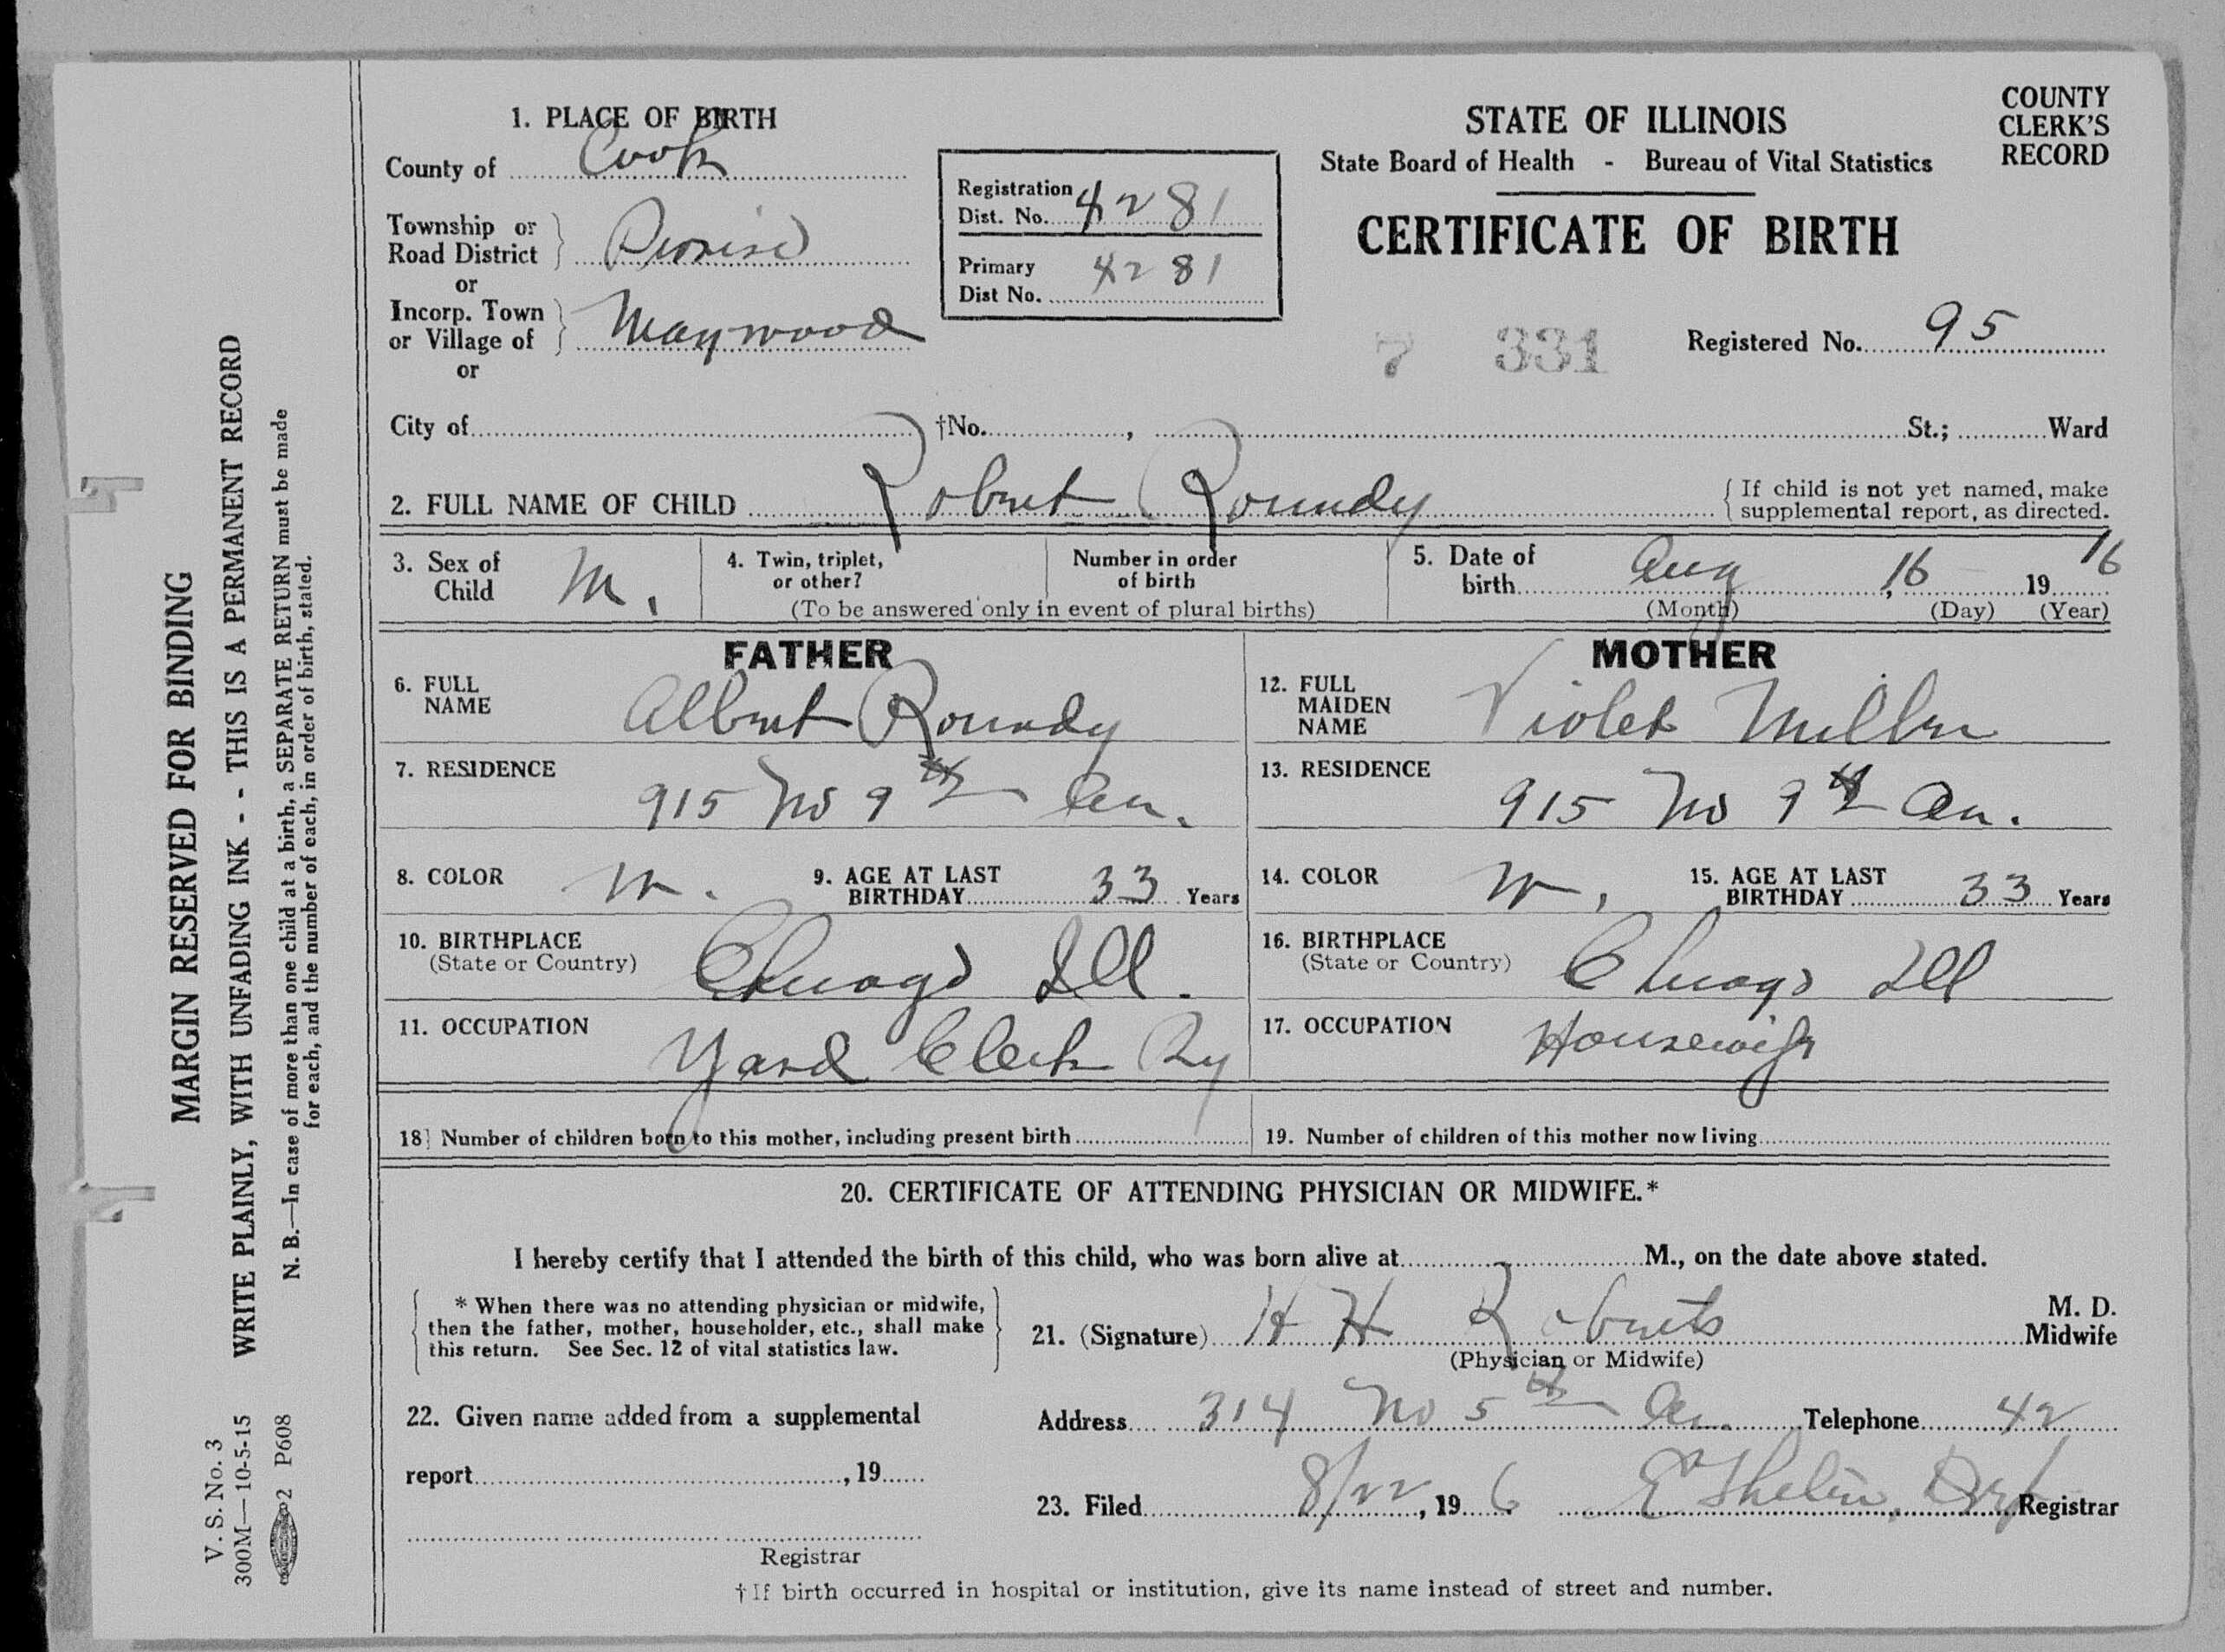 COUNTY
CLERK'S
RECORD
1. PLACE OF BIRTH
County of Cook
Township or
Road District
or
Incorp. Town
or Village of Maywood
or
City of †No. , St.; Ward
Registration
Dist. No. 4281
Primary
Dist No. 4281
STATE OF ILLINOIS
State Board of Health - Bureau of Vital Statistics
CERTIFICATE OF BIRTH
7 331
Registered No. 95
2. FULL NAME OF CHILD Robert Roundy
{ If child is not yet named, make
supplemental report, as directed.
3. Sex of
Child M.
4. Twin, triplet,
or other?
Number in order
of birth
(To be answered only in event of plural births)
5. Date of
birth Aug, 16 1916
(Month) (Day) (Year)
FATHER
6. FULL
NAME Albert Roundy
7. RESIDENCE 915 No 9th Av.
8. COLOR W.
9. AGE AT LAST
BIRTHDAY 33 Years
10. BIRTHPLACE
(State or Country) Chicago Ill.
11. OCCUPATION Yard Clerk Ry
MOTHER
12. FULL
MAIDEN
NAME Violet Miller
13. RESIDENCE 915 No 9th Av.
14. COLOR W,
15. AGE AT LAST
BIRTHDAY 33 Years
16. BIRTHPLACE
(State or Country) Chicago Ill
17. OCCUPATION Housewife
18] Number of children born to this mother, including present birth
19. Number of children of this mother now living
20. CERTIFICATE OF ATTENDING PHYSICIAN OR MIDWIFE.*
I hereby certify that I attended the birth of this child, who was born alive at M., on the date above stated.
* When there was no attending physician or midwife,
then the father, mother, householder, etc., shall make
this return. See Sec. 12 of vital statistics law.
21. (Signature) H H Roberts M. D.
Midwife
(Physician or Midwife)
22. Given name added from a supplemental
report , 19
Registrar
Address 314 No 5th Av. Telephone 42
23. Filed 8/22, 19 6 Registrar
†If birth occurred in hospital or institution, give its name instead of street and number.
MARGIN RESERVED FOR BINDING
WRITE PLAINLY, WITH UNFADING INK - - THIS IS A PERMANENT RECORD
N. B.—In case of more than one child at a birth, a SEPARATE RETURN must be made
for each, and the number of each, in order of birth, stated.
V. S. No. 3
300M—10-5-15
2 P608